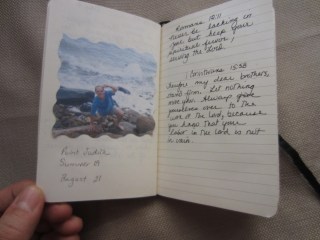 Point Judith
Summer
August
Romans 12:11
Never be lacking in
zeal, but keep your
spiritual fervor,
serving the Lord.
1 Corinthians 15:58
my dear brothers,
stand firm. Let nothing
move you. Always give
yourselves over to the
work of the Lord, because
you know that your
labor in the Lord is not
in vain.